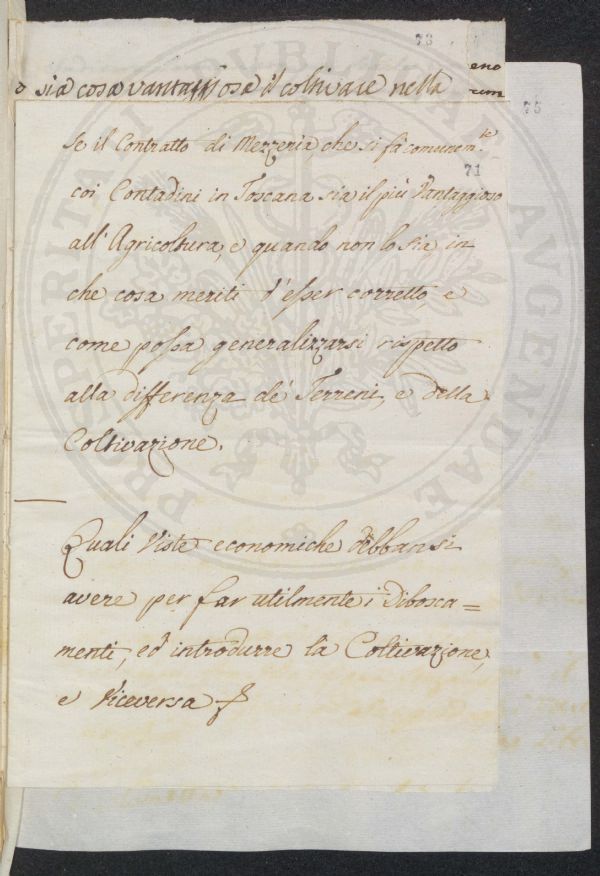 73
sia cosa vantaggiosa il coltivare nella
eno
75
Se il Contratto di Mezzeria, che si fà comunem.te
71
coi Contadini in Toscana sia il più Vantaggioso
all'Agricoltura, e quando non lo sia, in
che cosa meriti d'esser corretto, e
come possa generalizzarsi rispetto
alla differenza de' Terreni, e della
Coltivazione.
Quali Viste economiche debbansi
avere per far utilmente i Dibosca=
menti, ed introdurre la Coltivazione,
e Viceversa
PROSPERITATI PUBLICAE AUGENDAE